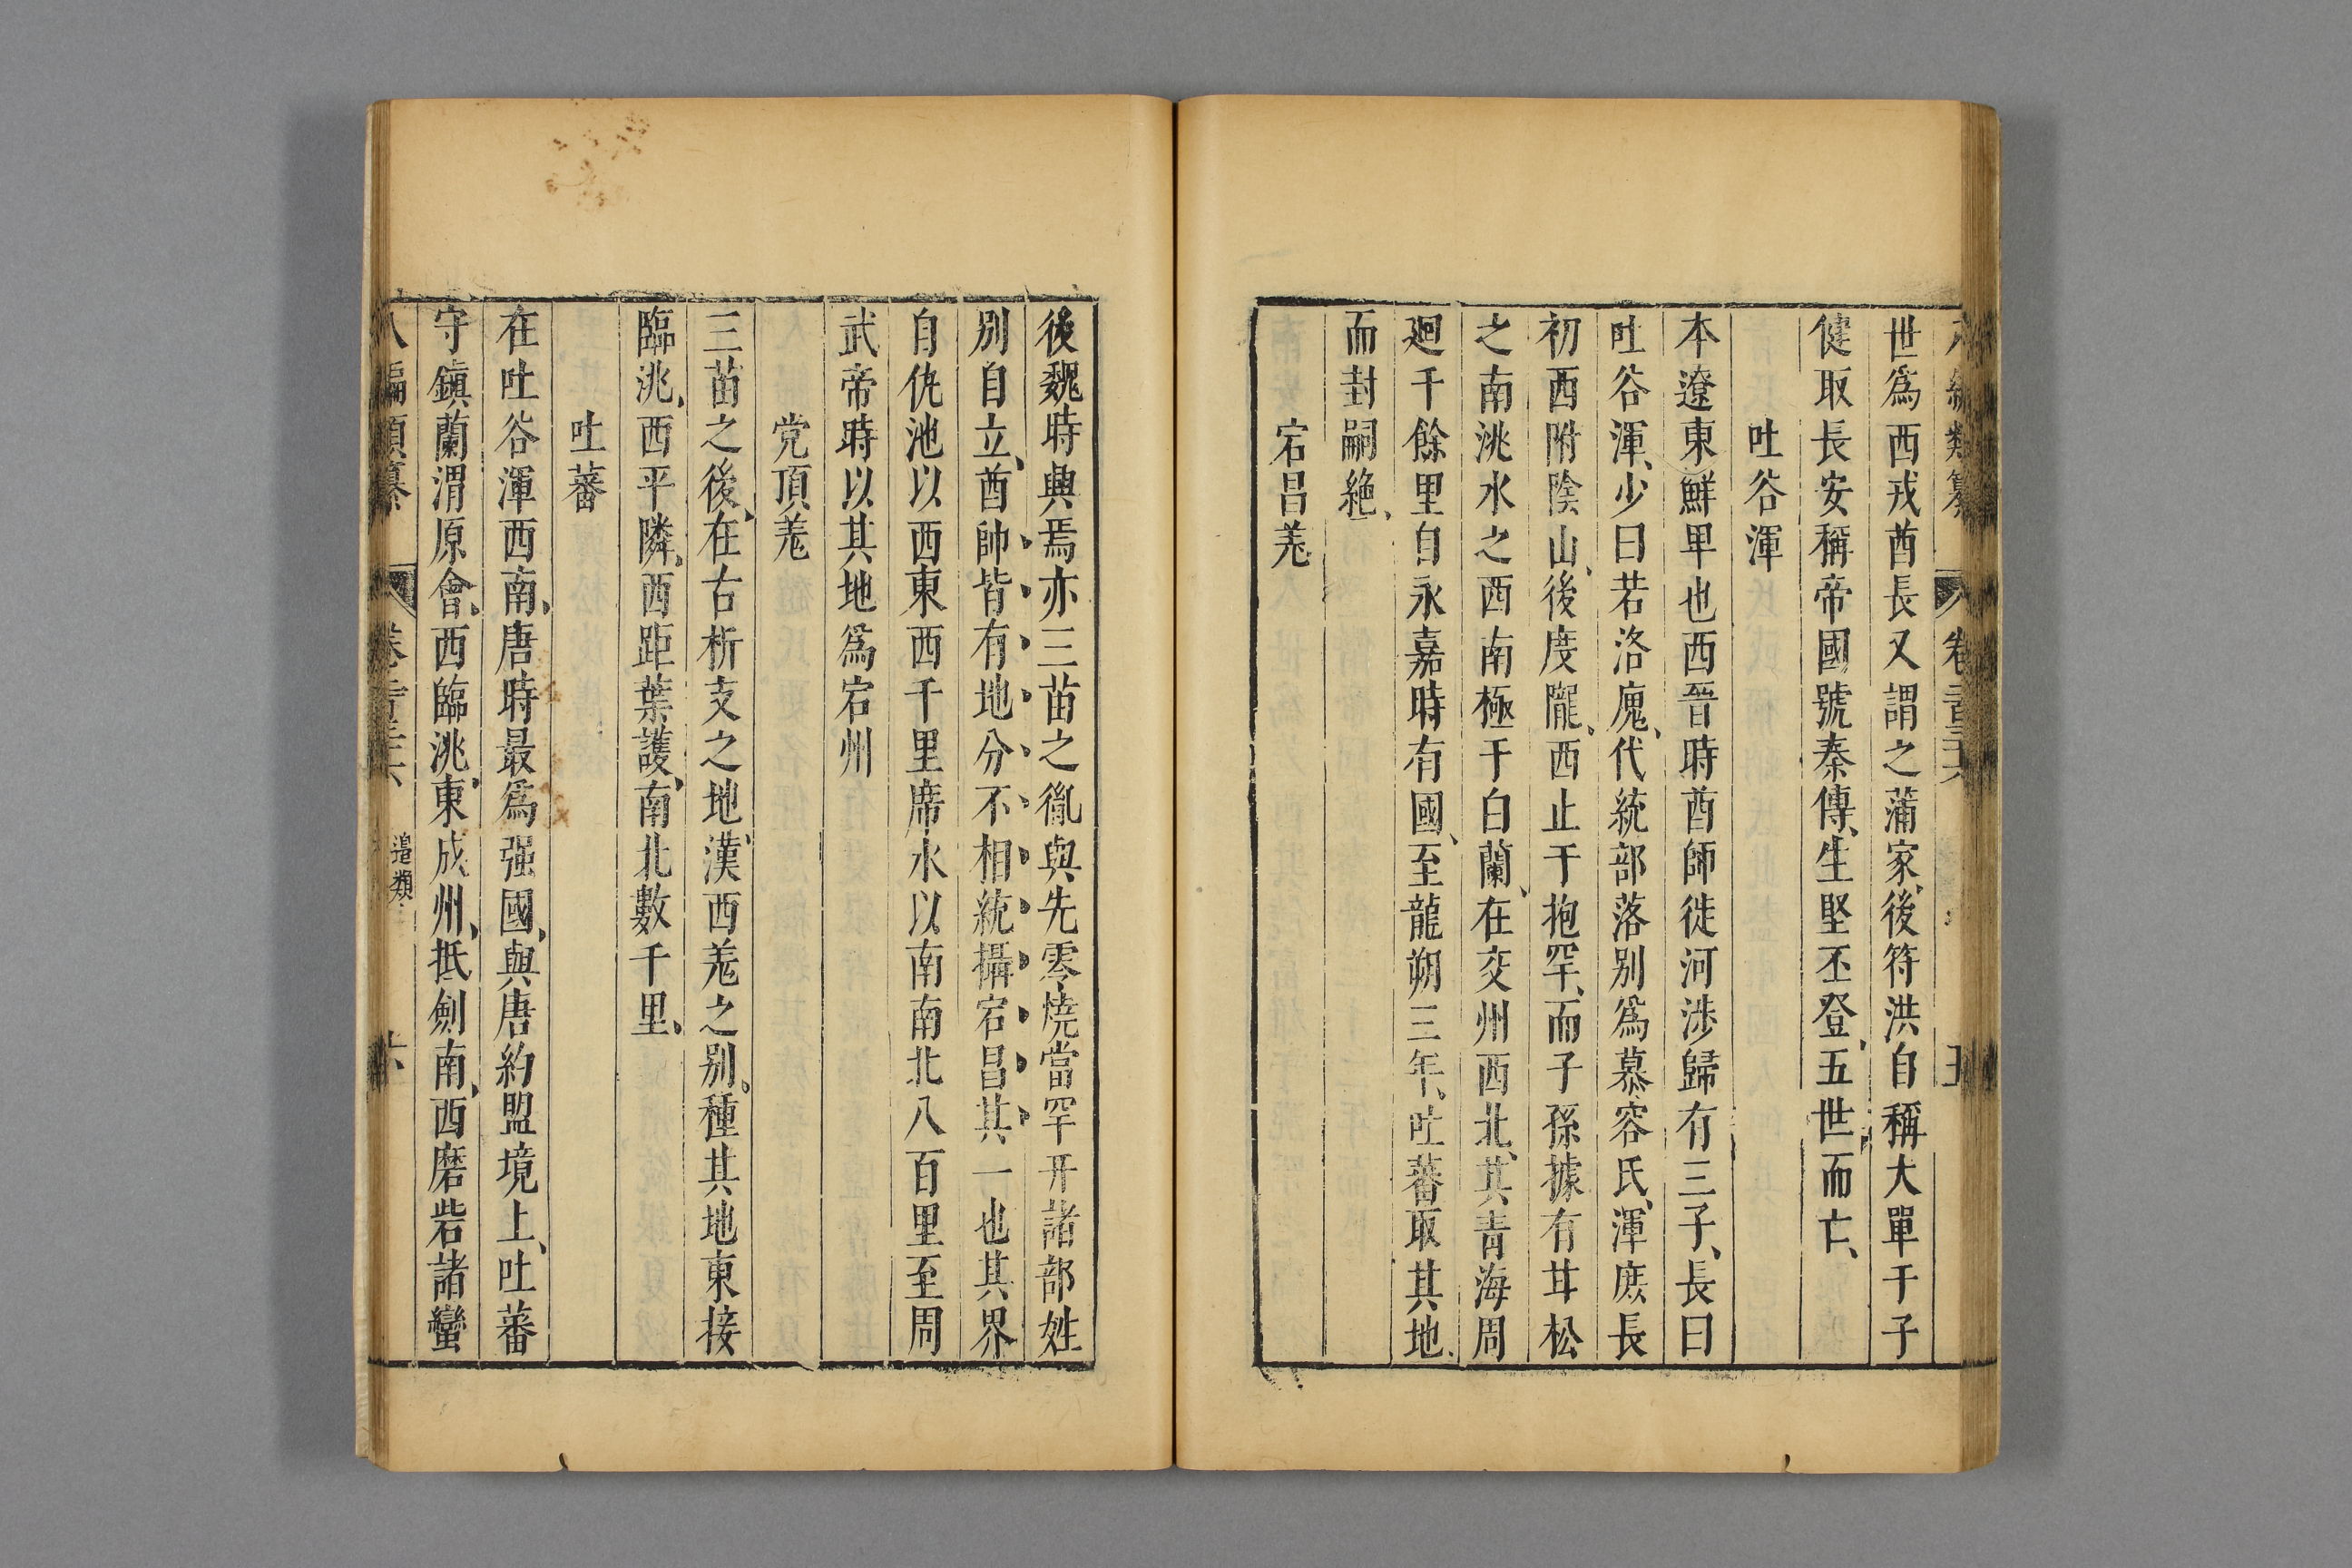 世爲西戎酋長又謂之蒲家後符洪自稱大單于子
健取長安稱帝國號秦傳生堅丕登五世而亡
吐谷渾
本遼東鮮卑也西晉時酋師徙河涉歸有三子長曰
吐谷渾少曰若洛廆代統部落別爲慕容氏渾庶長
初西附陰山後度隴西止于抱罕而子孫據有甘松
之南洮水之西南極于白蘭在交州西北其青海周
廻千餘里自永嘉時有國至龍朔三年吐蕃取其地
而封嗣絶
宕昌羗
後魏時興焉亦三苗之胤與先零燒當罕幵諸部姓
別自立酋帥皆有地分不相統攝宕昌其一也其界
自仇池以西東西千里席水以南南北八百里至周
武帝時以其地爲宕州
党頂羗
三苗之後在古析支之地漢西羗之別種其地東接
臨洮西平隣西距葉護南北數千里
吐蕃
在吐谷渾西南唐時最爲强國與唐約盟境上吐蕃
守鎮蘭渭原會西臨洮東成州抵劍南西磨砦諸蠻
八編類纂 卷 邉類